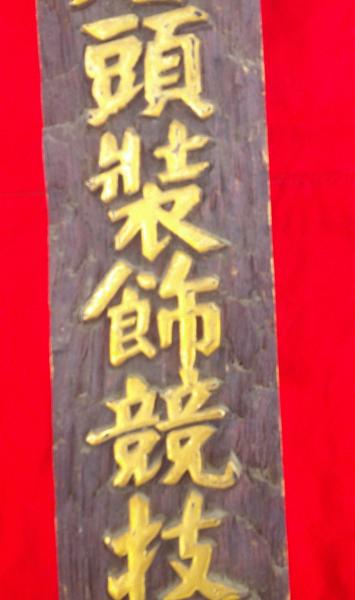 頭裝飾競技